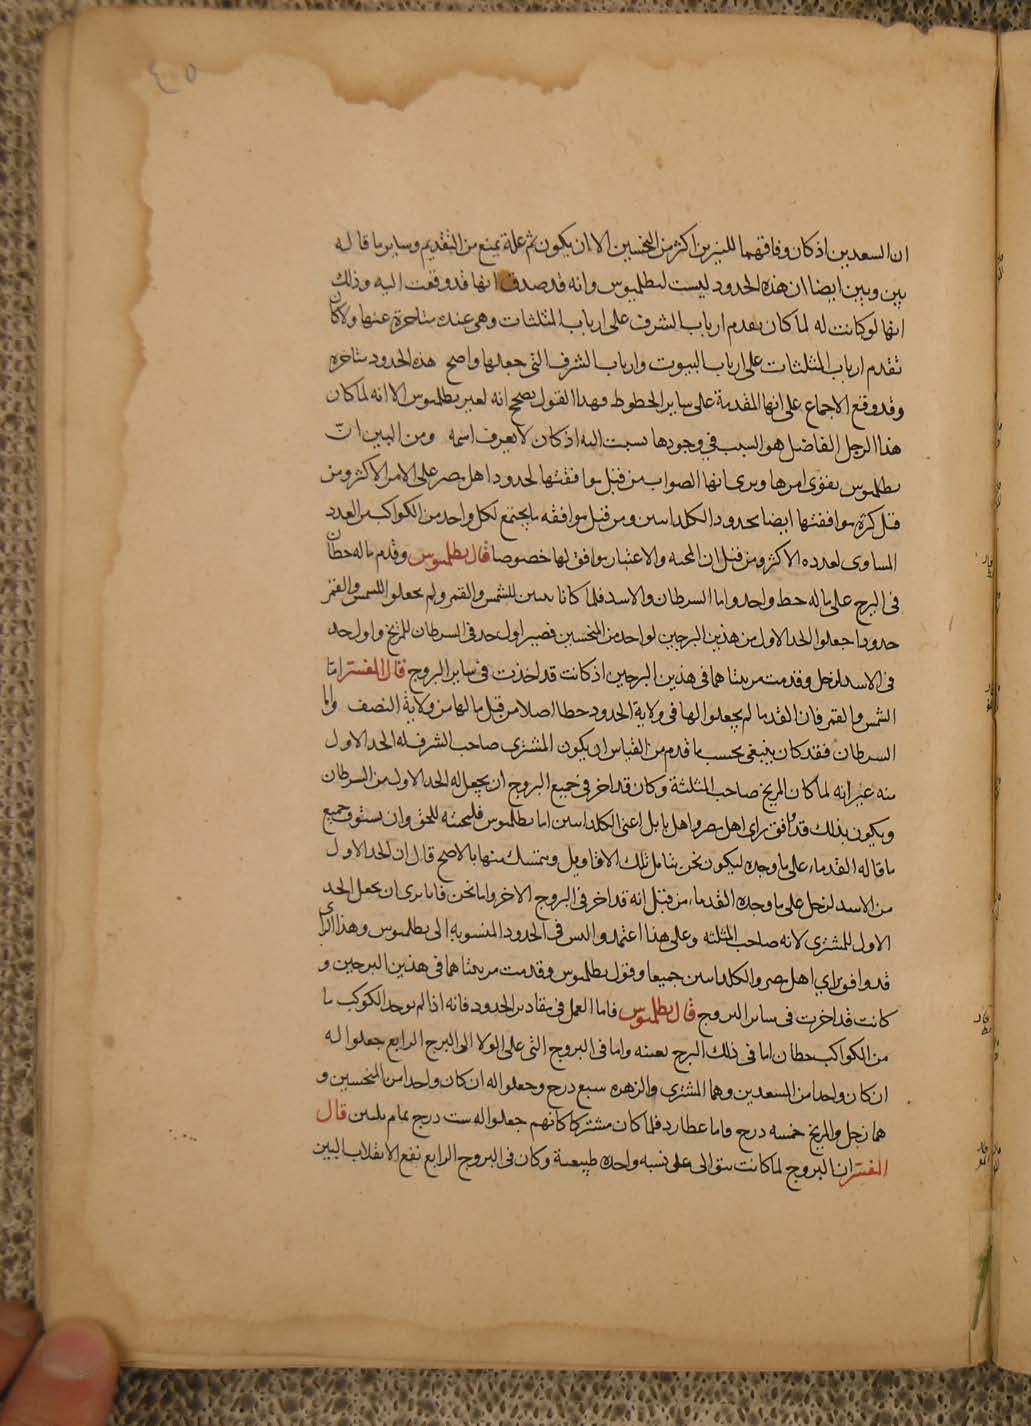 ٤٥
ان السعدين اذ كان وفاقهما للنيرين اكثر من النحسين الا ان يكون ثم علة يمنع من التقديم وساير ما قاله
بين وبين ايضا ان هذه الحدود ليست لبطلميوس وانه قد صدف انها قد وقعت اليه وذلك
انها لو كانت له لما كان يقدم ارباب الشرف على ارباب المثلثات وهى عنده متاخرة عنها ولا كان
تقدم ارباب المثلثات على ارباب البيوت وارباب الشرف التى جعلها واضح هذه الحدود متاخره
وقد وقع الاجماع على انها المقدمة على ساير الحظوظ وهذا القول يصح انه لغير بطلميوس الا انه لما كان
هذا الرجل الفاضل هو السبب في وجودها نسبت اليه اذ كان لا يعرف اسمه ومن البين ان
بطلميوس يقوى امرها ويرى انها الصواب من قبل موافقتها لحدود اهل مصر على الامر الاكثر ومن
قبل كثرة موافقتها ايضا بحدود الكلدانيين ومن قبل موافقه ما يجتمع لكل واحد من الكواكب من العدد
المساوى لعدده الاكثر ومن قبل ان المحنه والاعتبار موافق لها خصوصا قال بطلميوس وقدم ما له حظان
فى البرج على ما له حظ واحد واما السرطان والاسد فلما كانا بيتين للشمس والقمر ولم يجعلوا للشمس والقمر
حدودا جعلوا الحد الاول من هذين البرجين لواحد من النحسين فصير اول حد فى السرطان للمريخ واول حد
فى الاسد لزحل وقدمت مرتبتاهما فى هذين البرجين اذ كانت قد اخذت فى ساير البروج قال المفسر اما
الشمس والقمر فان القدما لم يجعلوا لها فى ولاية الحدود حظا اصلا من قبل ما لها من ولاية النصف واما
السرطان فقد كان ينبغى بحسب ما قدم من القياس ان يكون المشترى صاحب الشرف له الحد الاول
منه غير انه لما كان المريخ صاحب المثلثة وكان قد اخر فى جميع البروج ان يجعل له الحد الاول من السرطان
ويكون بذلك قد وافق راى اهل مصر واهل بابل اعنى الكلدانيين اما بطلميوس فلمحبته للحق وان يستوفى جميع
ما قاله القدماء على ما وجده ليكون نحن نتامل تلك الاقاويل ويتمسك منها بالاصح قال ان الحد الاول
من الاسد لزحل على ما وجده القدماء من قبل انه قد اخر فى البروج الاخر واما نحن فانا نرى ان يجعل الحد
الاول للمشترى لانه صاحب المثلثه وعلى هذا اعتمد واليس فى الحدود المنسوبه الى بطلميوس وهذا الراى
قد وافق راي اهل مصر والكلدانيين جميعا وقول بطلميوس وقدمت مرتبتاهما فى هذين البرجين و
كانت قد اخرت فى ساير البروج قال بطلميوس فاما العمل فى مقادير الحدود فانه اذا لم يوجد الكوكب ما
من الكواكب حظان اما فى ذلك البرج بعينه واما فى البروج التى على الولا الى البرج الرابع جعلوا له
ان كان واحدا من السعدين وهما المشترى والزهره سبع درج وجعلوا له ان كان واحدا من النحسين و
هما زحل والمريخ خمسه درج واما عطارد فلما كان مشتركا كانهم جعلوا له ست درج تمام ثلثين قال
المفسر ان البروج لما كانت تتوالى على نسبه واحده طبيعية وكان فى البروج الرابع تقع الانقلاب البين